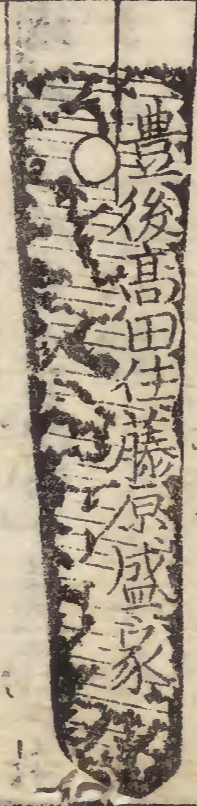 豊後髙田住藤原盛家